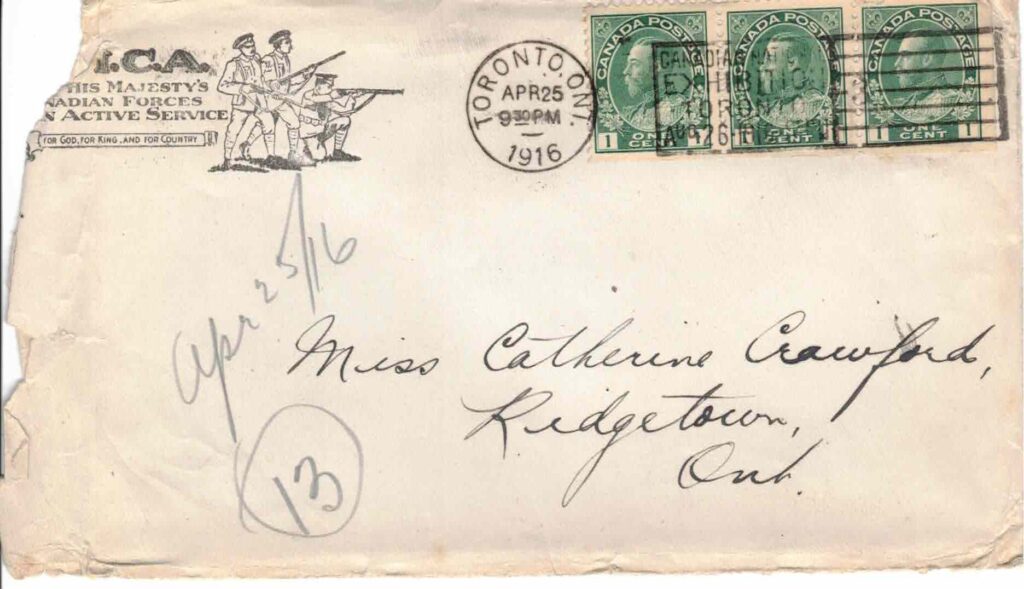 .C.A.
HIS MAJESTY'S
NADIAN FORCES
N ACTIVE SERVICE
FOR GOD, FOR KING, AND FOR COUNTRY
TORONTO, ONT.
APR 25
9 30 PM
1916
CANADA POSTAGE
1 ONE CENT 1
CANADA POSTAGE
CENT
CANADA POSTAGE
1 ONE CENT 1
CANADIAN NAT
EXHIBITIO
TORONT
AUG 26
Apr 25/16
Miss Catherine Crawford,
Ridgetown,
Ont.
13